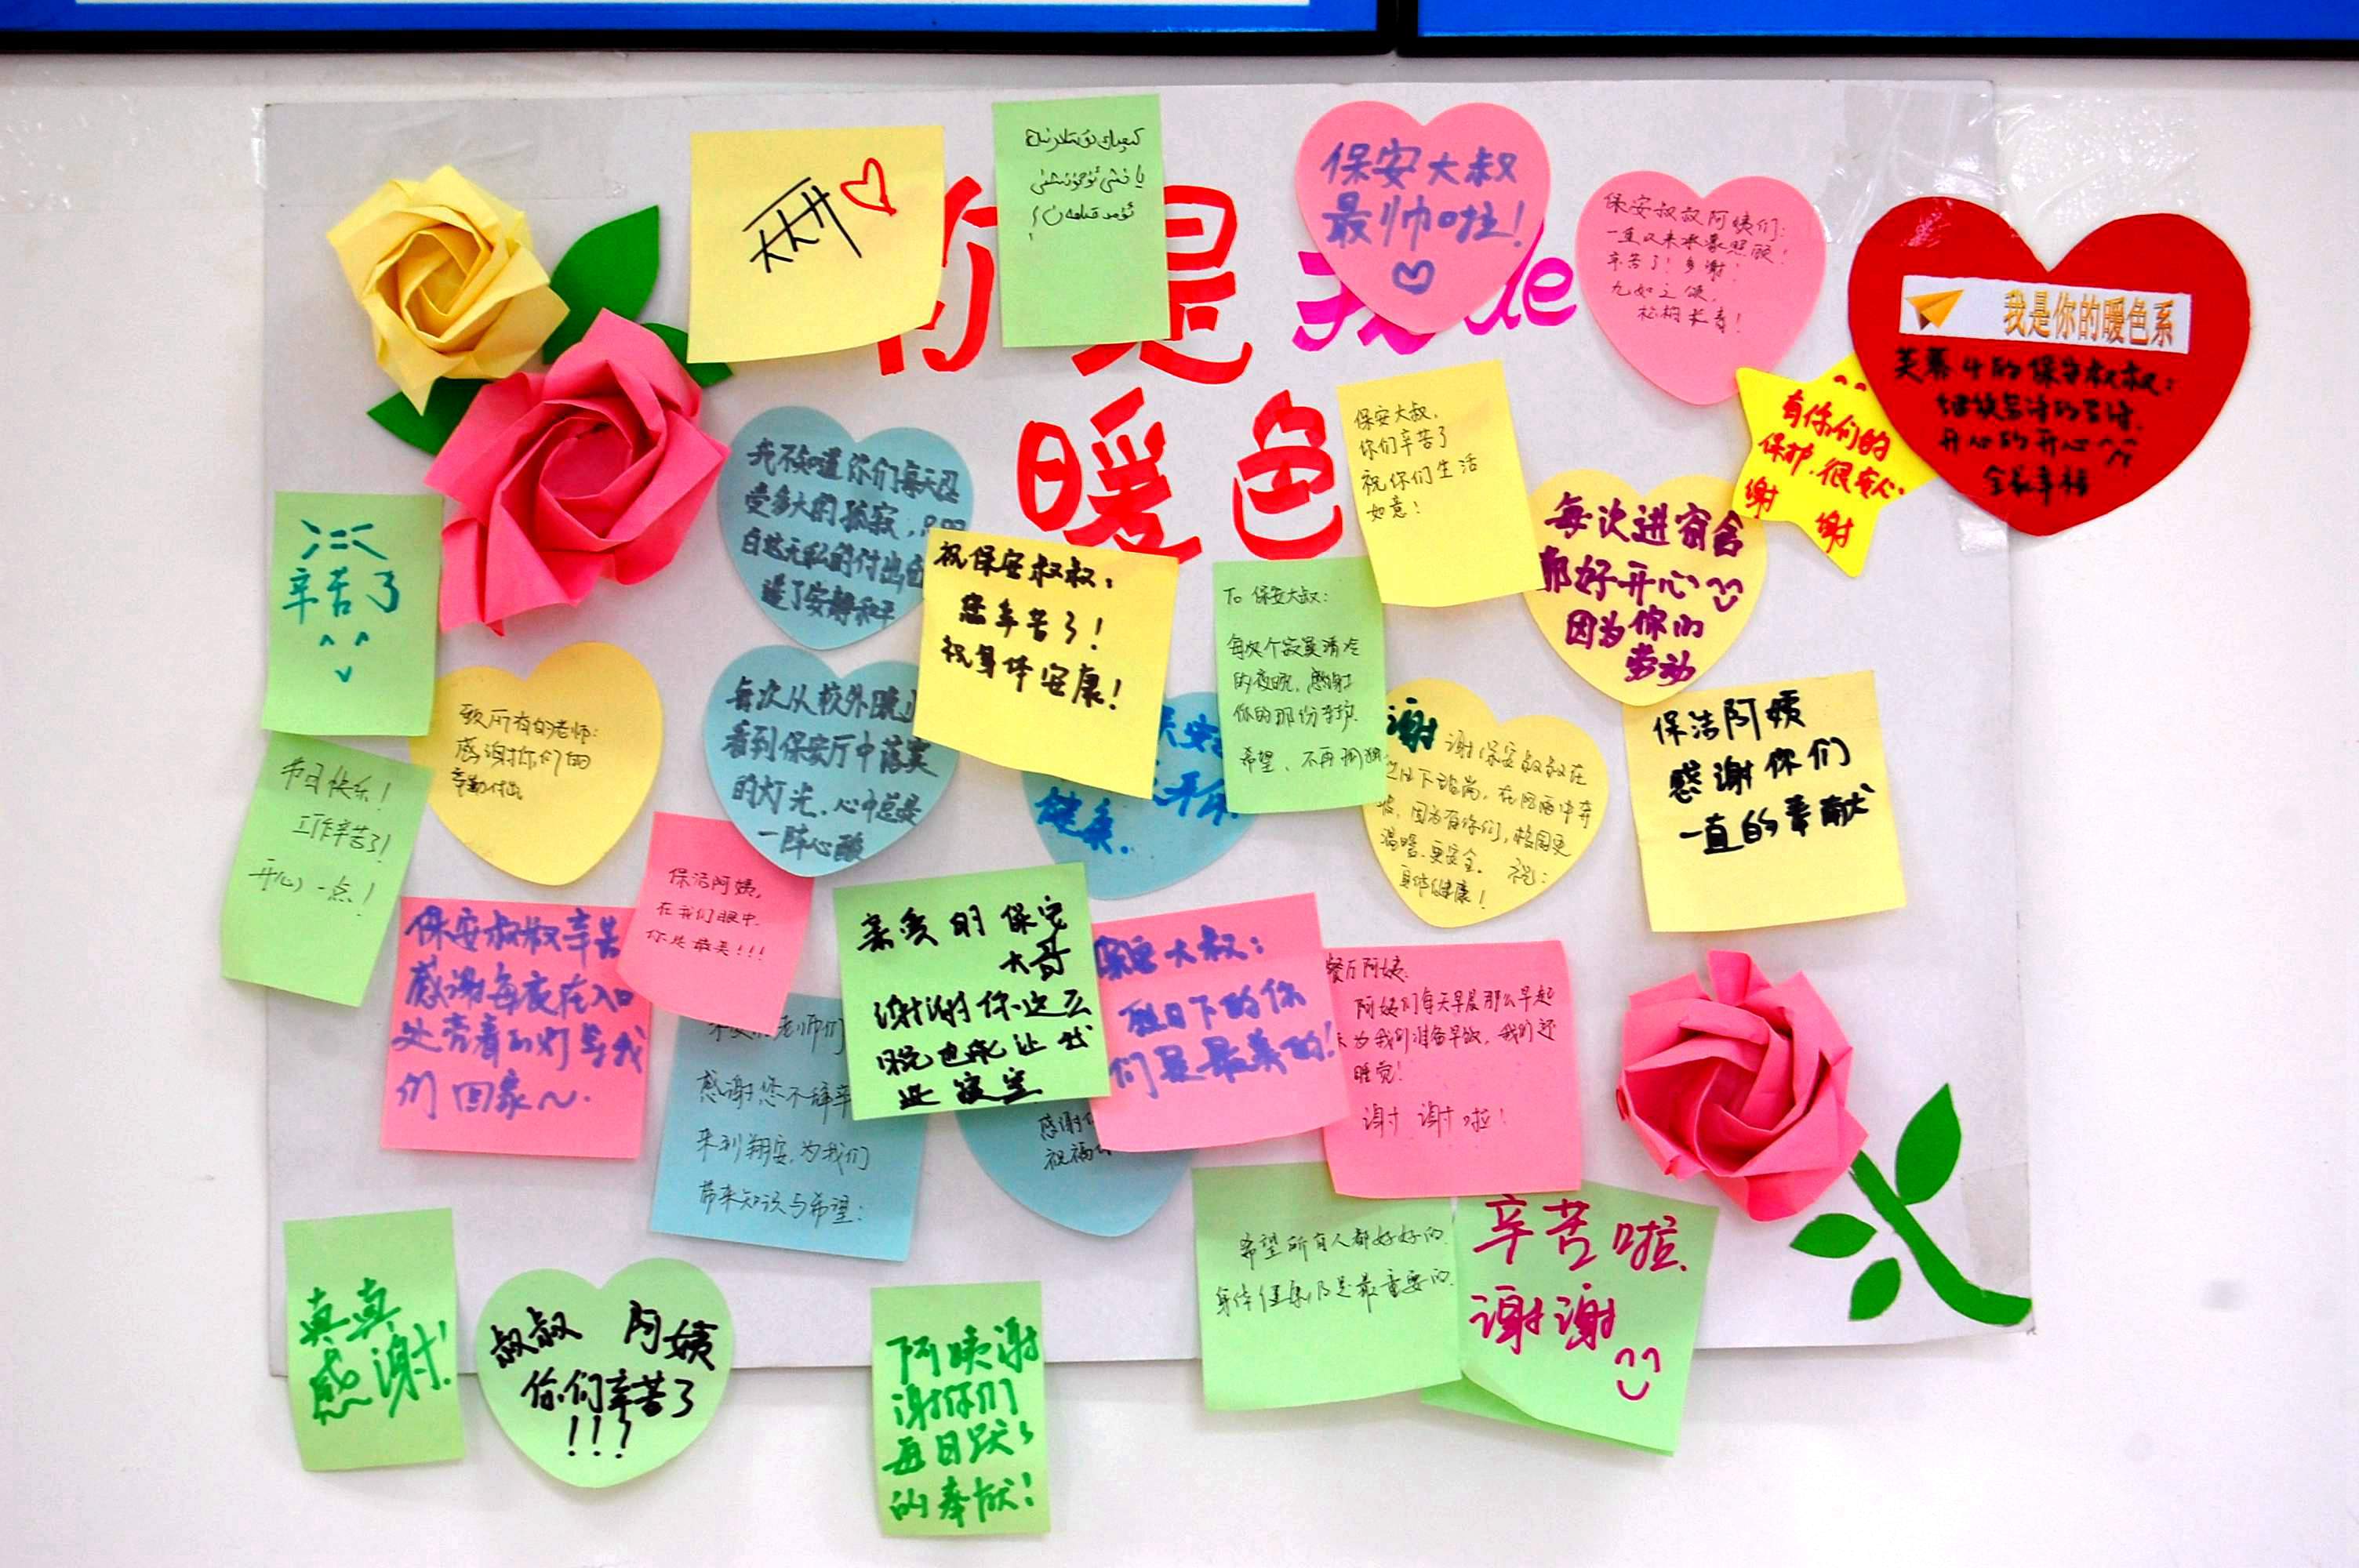 你是我de
暖色
保安大叔
最帅啦!
保安叔叔阿姨们:
一直以来承蒙照顾!
辛苦了!多谢!
九如之颂,
松柏长青!
我是你的暖色系
芙蓉4的保安叔叔:
开心的开心
全家幸福
有你们的
保护.很安心.
谢 谢
保安大叔,
你们辛苦了
祝你们生活
如意!
每次进宿舍
都好开心
因为你的
劳动
我不知道你们每天忍
受多大的孤寂,只明
白这无私的付出创
造了安静和平
祝保安叔叔:
您辛苦了!
祝身体安康!
To 保安大叔:
每次个寂寞清冷
的夜晚,感谢
你的那份守护.
希望、不再孤独
辛苦了
致所有的老师:
感谢你们的
辛勤付出
每次从校外晚
看到保安厅中落寞
的灯光.心中总是
一阵心酸
保安
开
健康.
谢谢保安叔叔在
下站岗,在风雨中奔
波,因为有你们,校园更
温暖.更安全. 祝:
身体健康!
保洁阿姨
感谢你们
一直的奉献
节日快乐!
工作辛苦了!
开心一点!
保安叔叔辛苦
感谢每夜在入口
处亮着的灯与我
们回家~.
保洁阿姨,
在我们眼中.
你是最美!!!
亲爱的保安
大哥
谢谢你这么
晚也能让我
如此安定
保安大叔:
烈日下的你
们是最美的!
餐厅阿姨:
阿姨们每天早晨那么早起
为我们准备早饭,我们还
睡觉!
谢谢啦!
老师们
感谢您不辞辛
来到翔安,为我们
带来知识与希望:
感谢
祝福
希望所有人都好好的.
身体健康乃是最重要的.
辛苦啦.
谢谢
真真
感谢!
叔叔 阿姨
你们辛苦了
!!!
阿姨谢
谢你们
每日默默
的奉献!